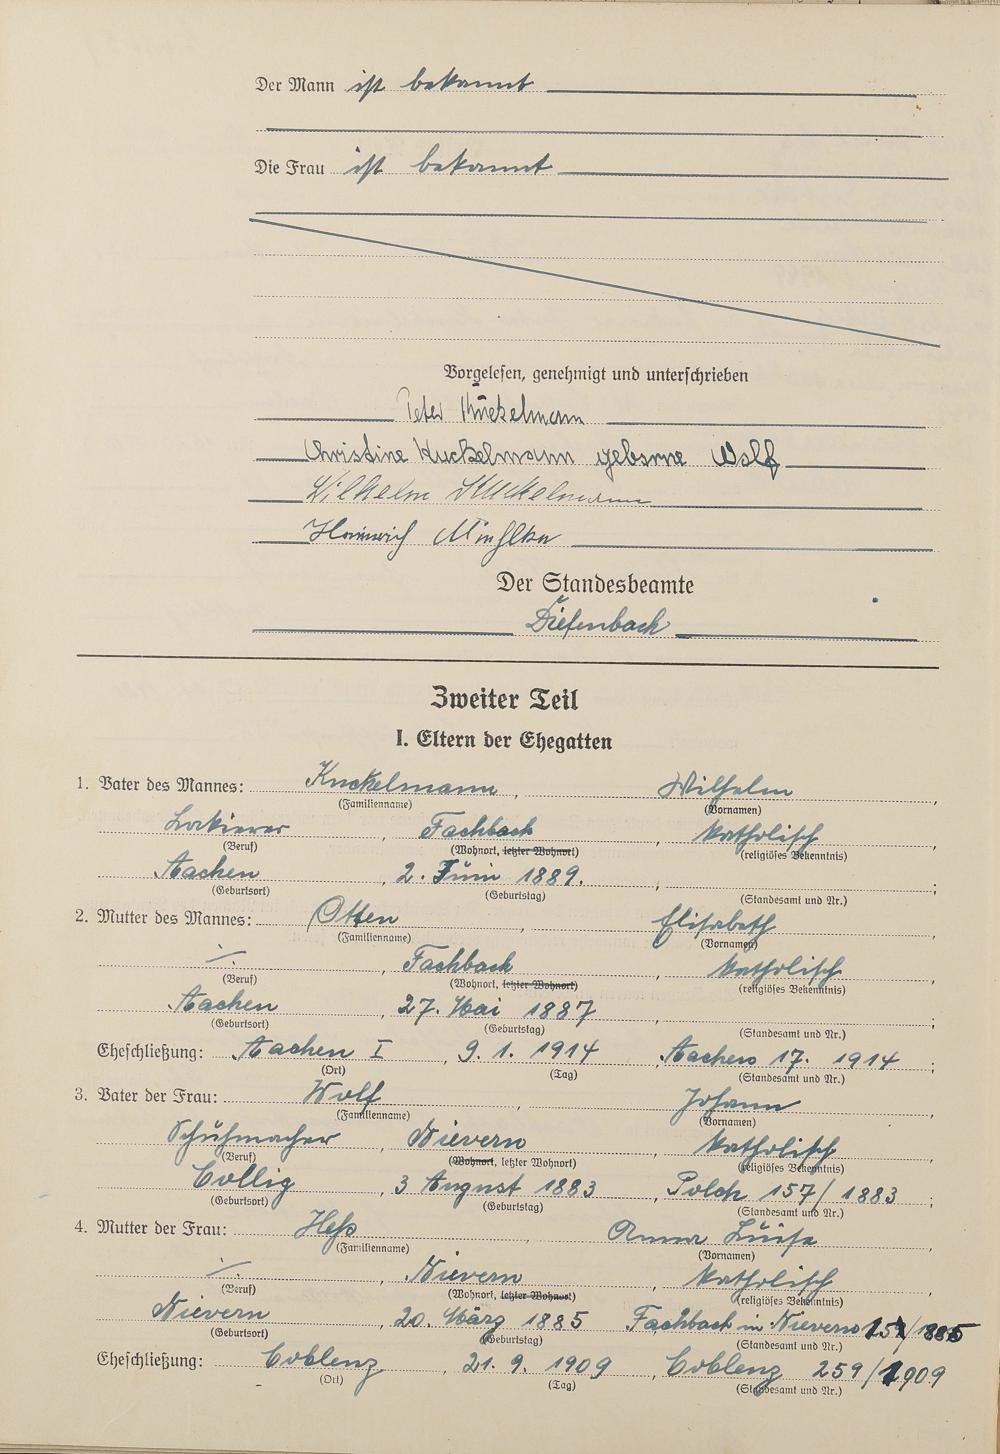 Der Mann ist bekannt
Die Frau ist bekannt
Vorgelesen, genehmigt und unterschrieben
Peter Kuckelmann
Christine Kuckelmann geborne Wolf
Wilhelm Kuckelmann
Heinrich
Der Standesbeamte
Diefenbach
Zweiter Teil
I. Eltern der Ehegatten
1. Vater des Mannes: Kuckelmann, Wilhelm,
(Familienname) (Vornamen)
Lackierer, Fachbach, katholisch
(Beruf) (Wohnort, letzter Wohnort) (religiöses Bekenntnis)
Aachen, 2. Juni 1889. , ;
(Geburtsort) (Geburtstag) (Standesamt und Nr.)
2. Mutter des Mannes: Otten, Elisabeth,
(Familienname) (Vornamen)
/., Fachbach, katholisch
(Beruf) (Wohnort, letzter Wohnort) (religiöses Bekenntnis)
Aachen, 27. Mai 1887, ;
(Geburtsort) (Geburtstag) (Standesamt und Nr.)
Eheschließung: Aachen I, 9. 1. 1914, Aachen 17. 1914;
(Ort) (Tag) (Standesamt und Nr.)
3. Vater der Frau: Wolf, Johann,
(Familienname) (Vornamen)
Schuhmacher, Nievern, katholisch
(Beruf) (Wohnort, letzter Wohnort) (religiöses Bekenntnis)
Collig, 3 August 1883, Polch 157/1883;
(Geburtsort) (Geburtstag) (Standesamt und Nr.)
4. Mutter der Frau: Heß, Anna Luise,
(Familienname) (Vornamen)
/., Nievern, katholisch,
(Beruf) (Wohnort, letzter Wohnort) (religiöses Bekenntnis)
Nievern, 20. März 1885 Fachbach in Nievern /1885
(Geburtsort) (Geburtstag) (Standesamt und Nr.)
Eheschließung: Coblenz, 21. 9. 1909, Coblenz 259/1909
(Ort) (Tag) (Standesamt und Nr.)